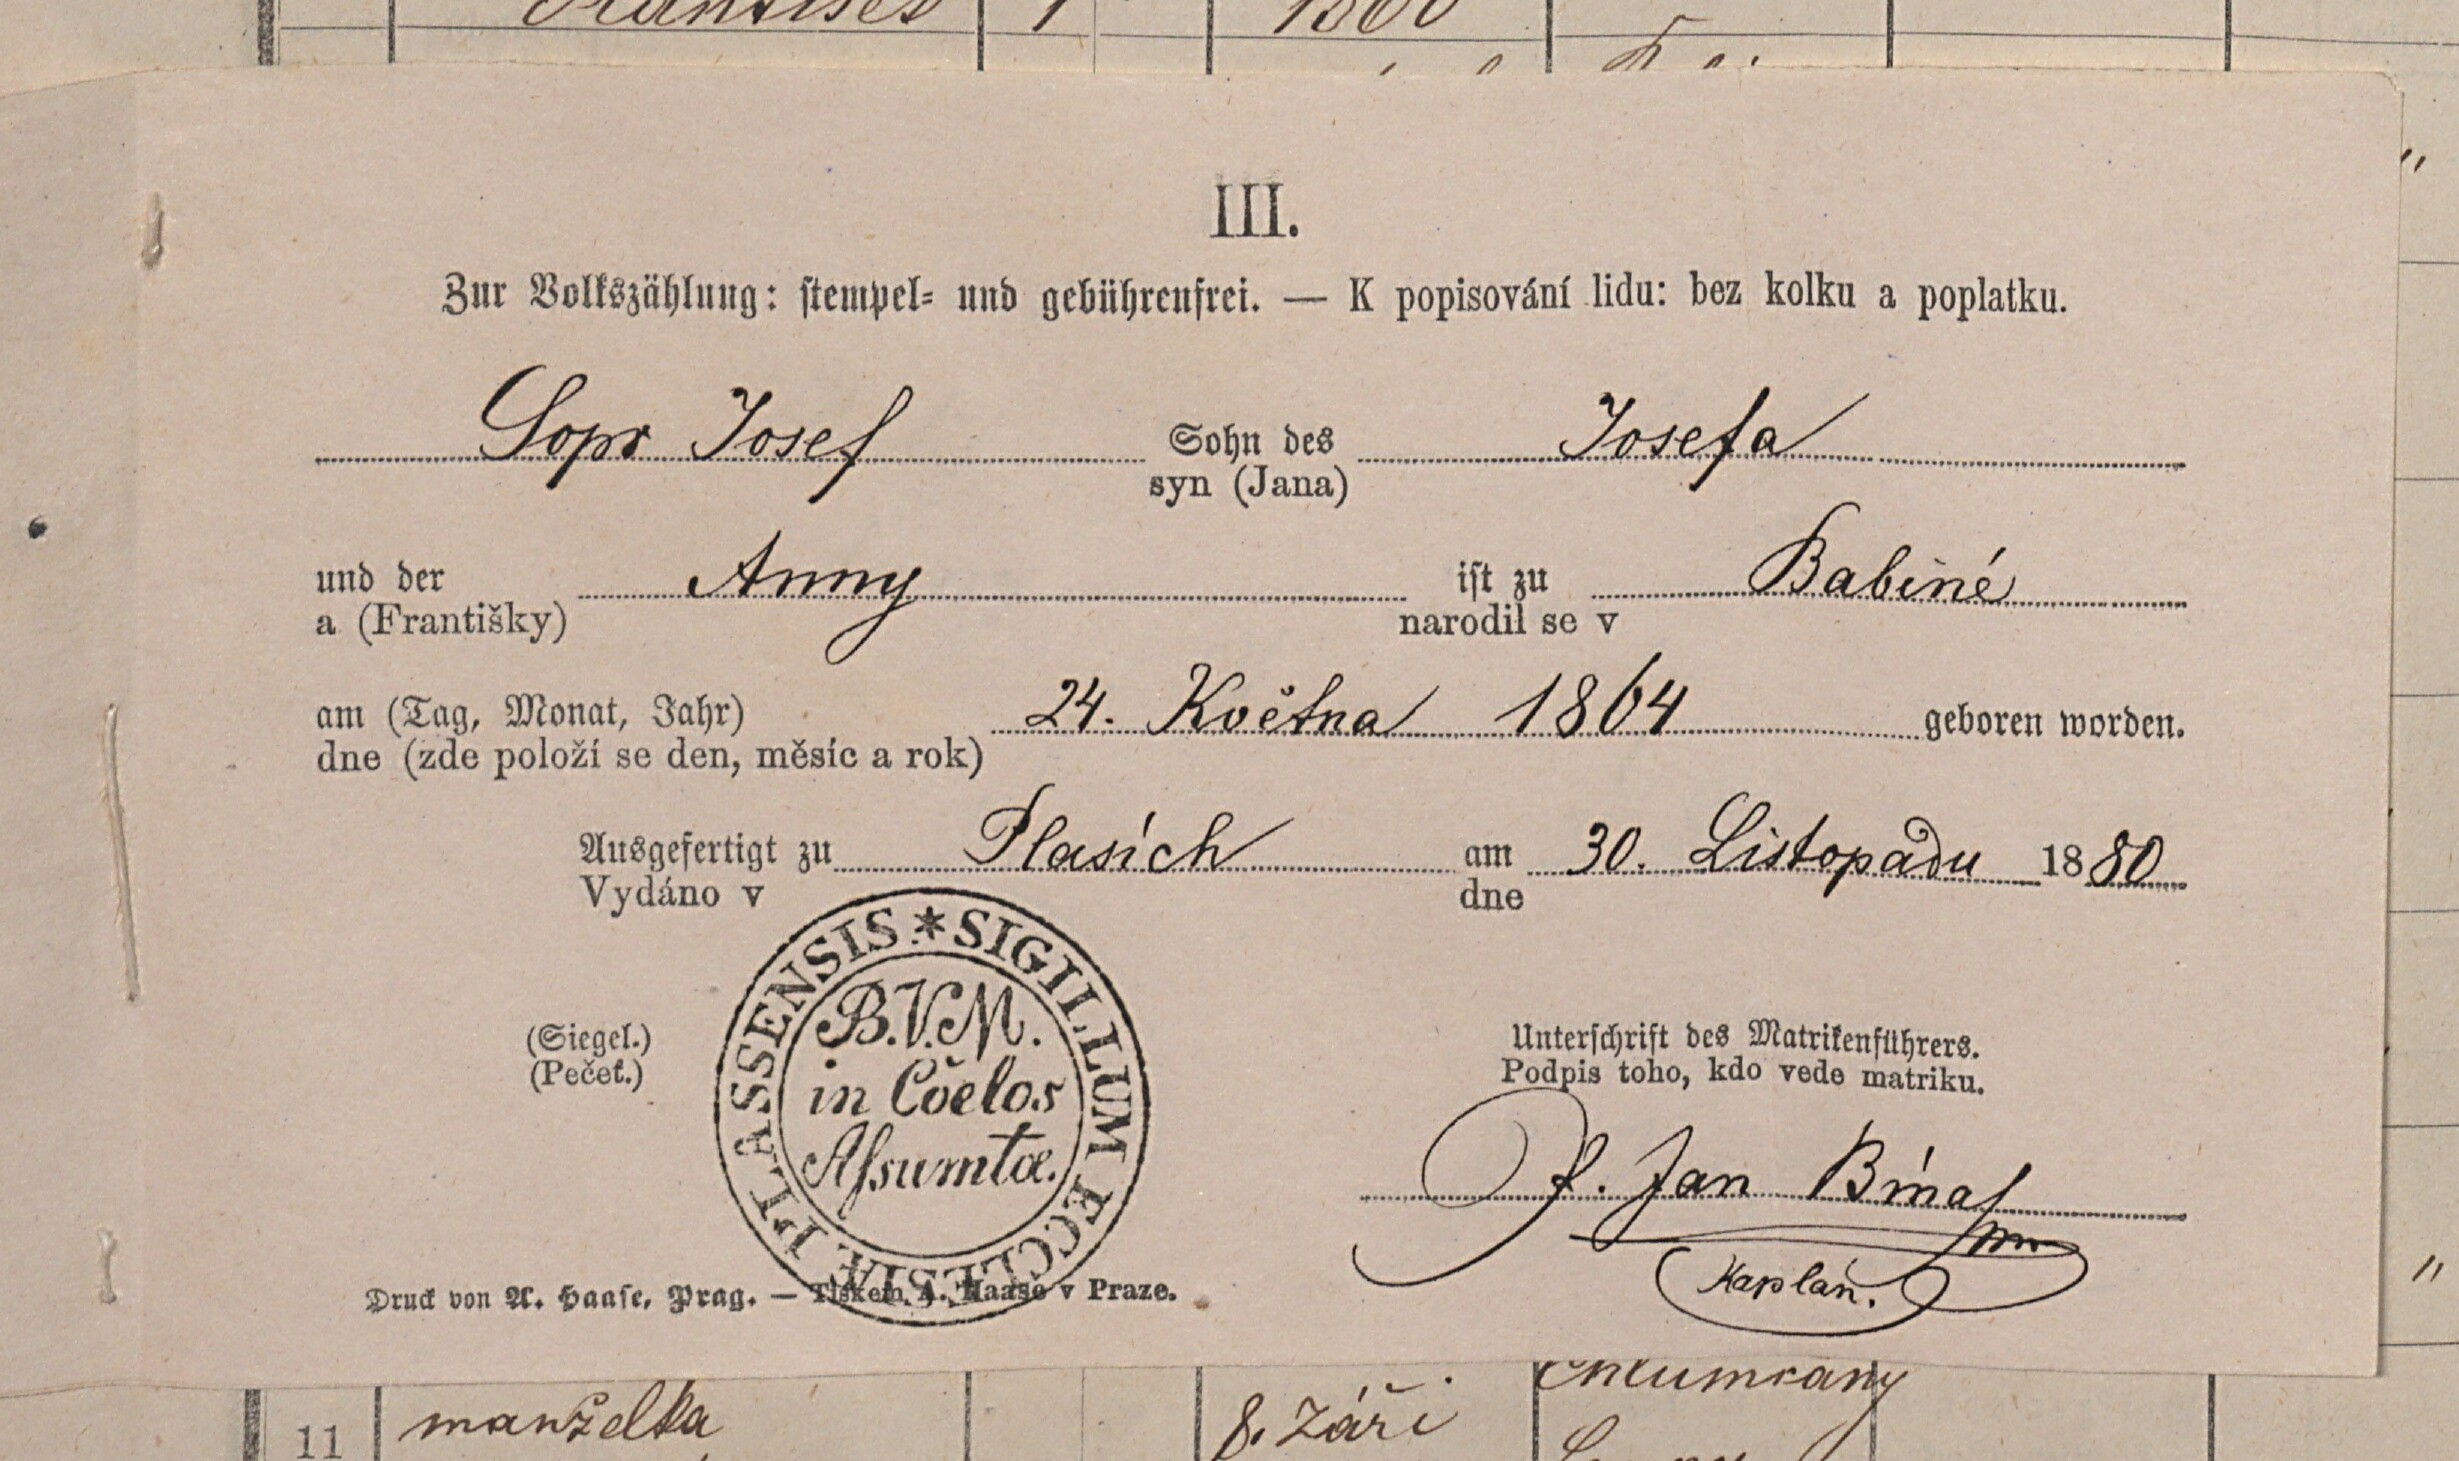 1860
III.
Zur Volkszählung: stempel- und gebührenfrei. — K popisování lidu: bez kolku a poplatku.
Sopr Josef Sohn des Josefa
syn (Jana)
und der Anny ist zu Babině
a (Františky) narodil se v
am (Tag, Monat, Jahr) 24. Května 1864 geboren worden.
dne (zde položí se den, měsíc a rok)
Ausgefertigt zu Plasích am 30. Listopadu 1880
Vydáno v dne
SIGILLUM ECCLESIÆ PLASSENSIS *
B.V.M.
in Cöelos
Assumtæ.
(Siegel.)
(Pečeť.)
Unterschrift des Matrikenführers.
Podpis toho, kdo vede matriku.
P. Jan
Kaplan.
Druck von A. Haase, Prag. — Tiskem A. Haase v Praze.
11 manželka 8. Září